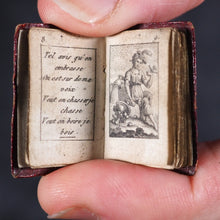 8.
Tel avis qu'on
embrasse
On est sur de ma
voix
Veut on chasser je
chasse
Veut on boire je
bois.